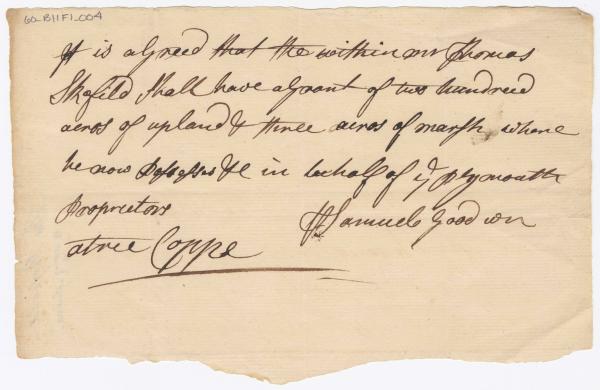 60-B11F1-004
It is agreed that the within mr Thomas
Skofild Shall have a grant of two hundred
acros of upland & three acros of marsh where
he now Possesses &c in behalf of ye plymouth
Proprietors
Samuel Goodwin
atrue Coppe